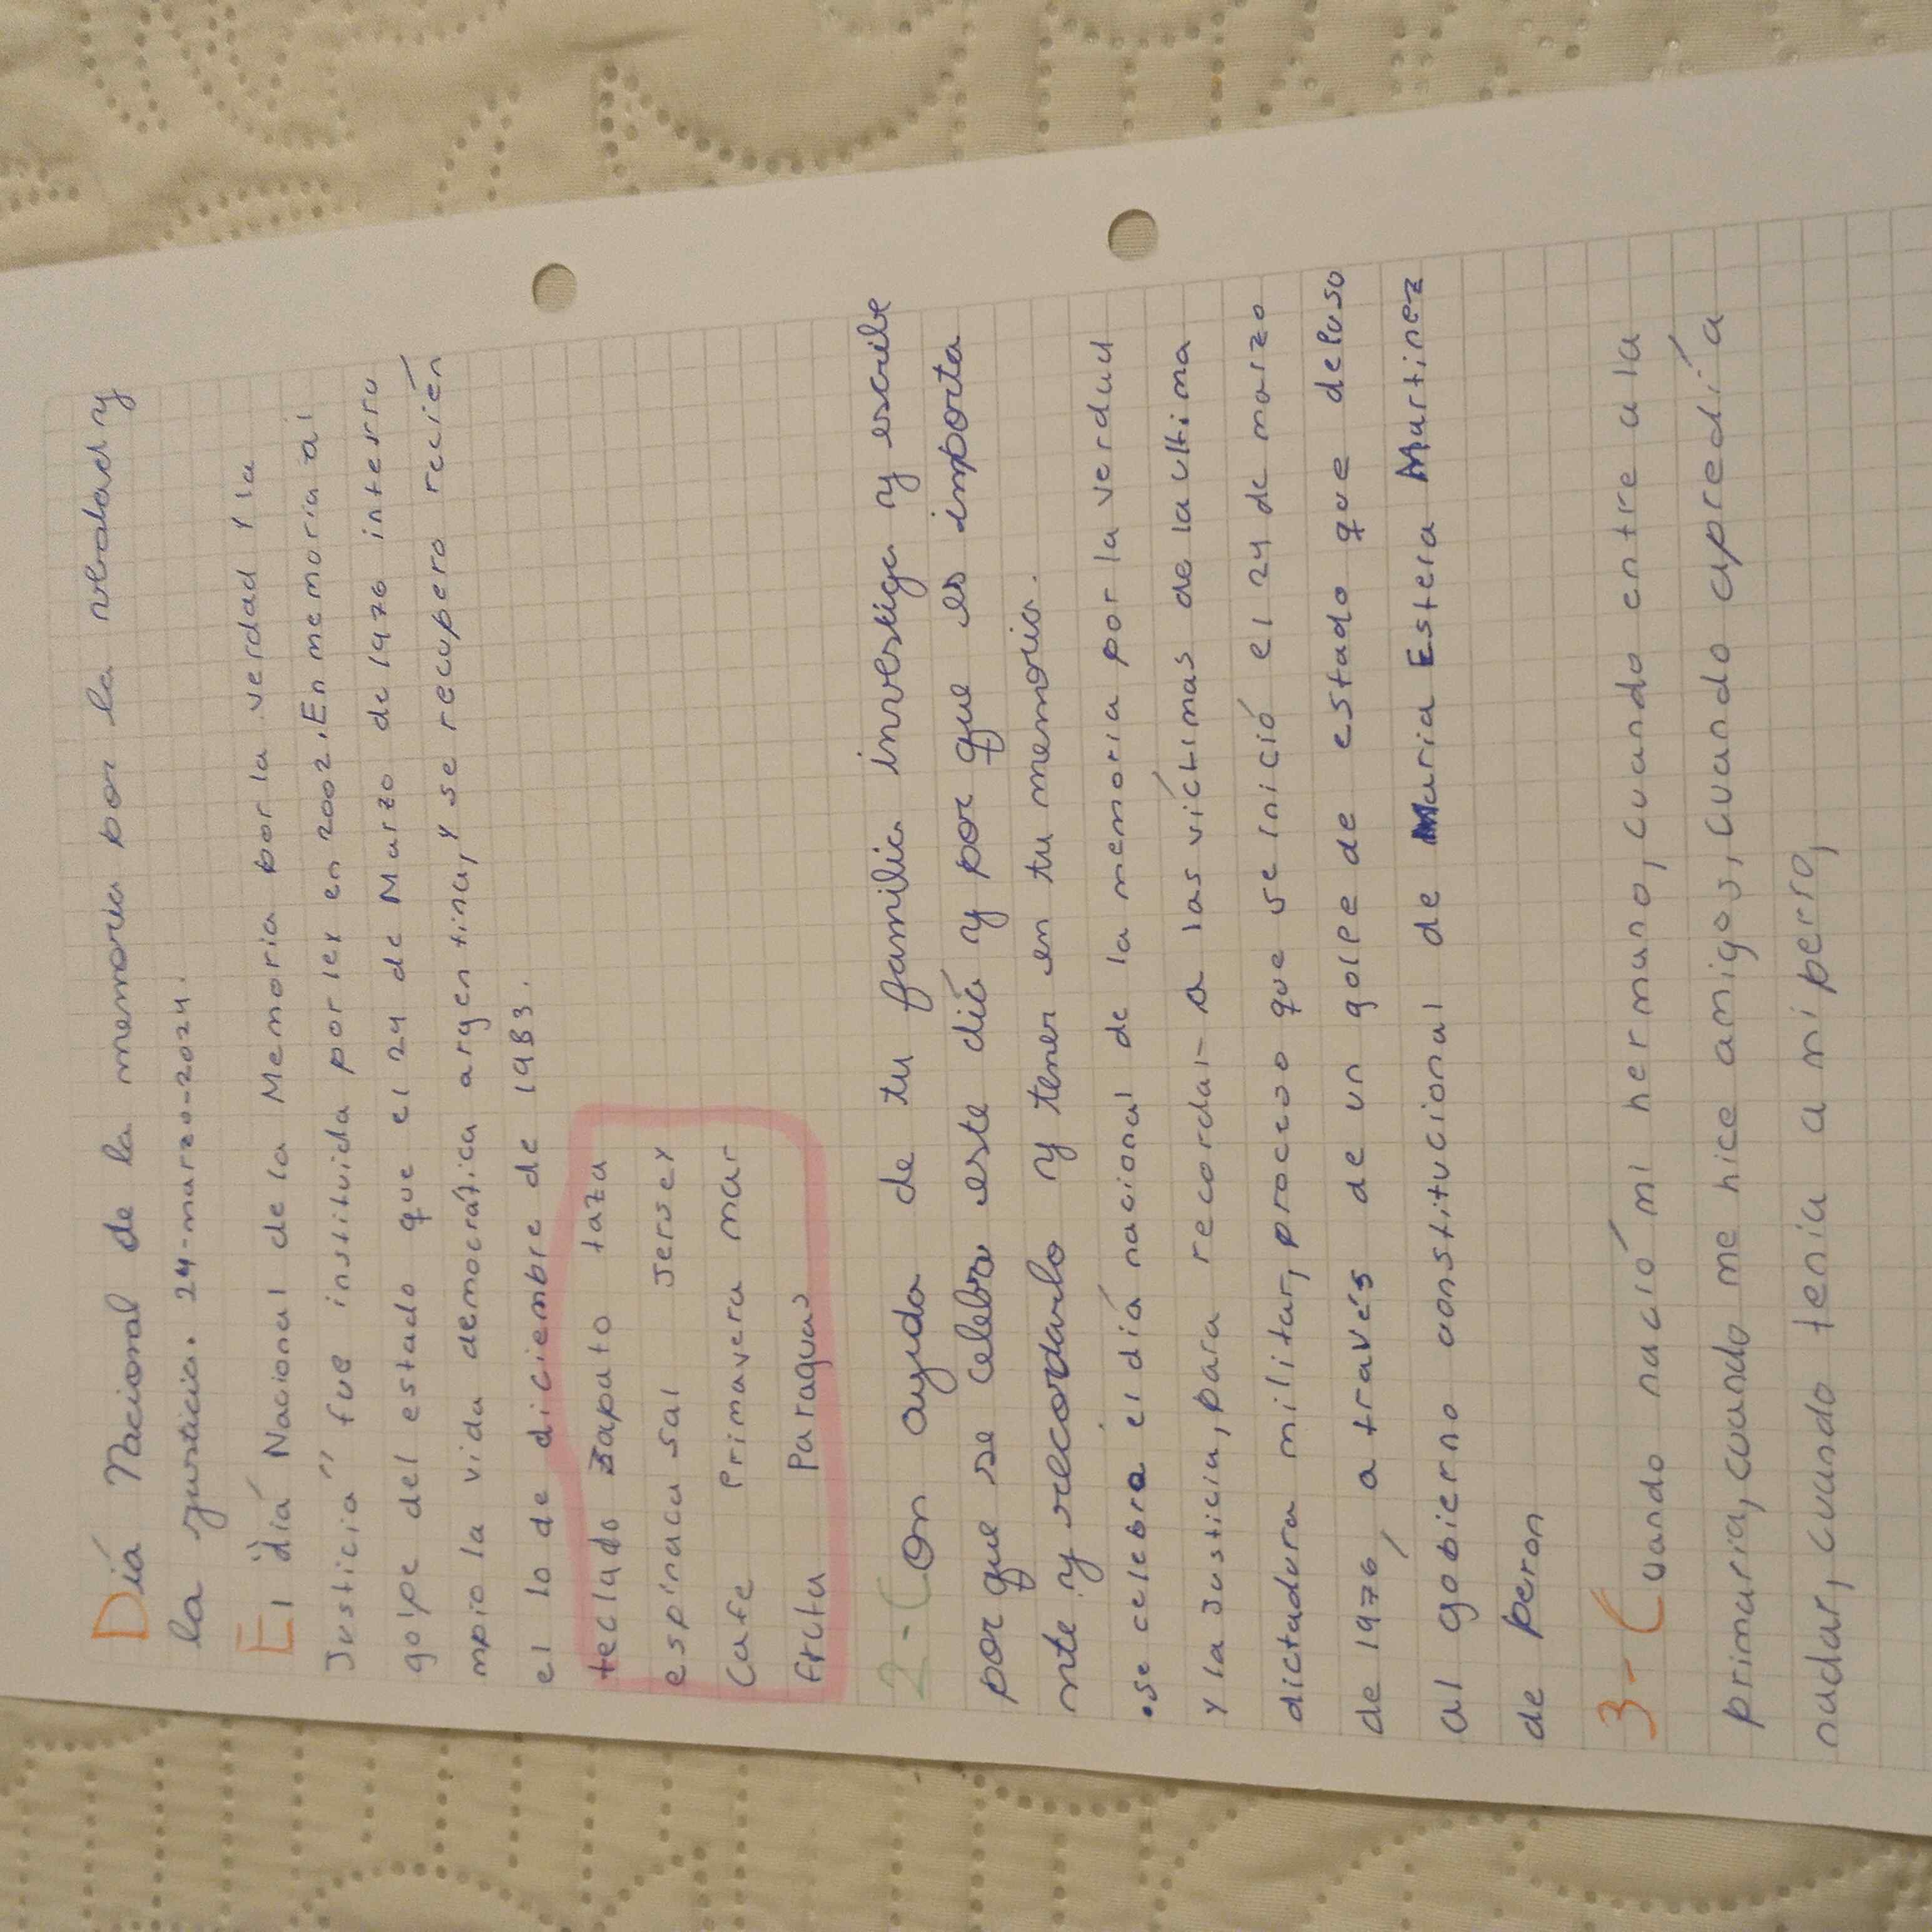 Día Nacional de la memoria por la verdad y
la justicia. 24-marzo-2024.
El día Nacional de la Memoria por la verdad y la
Justicia" fue instituida por ley en 2002, En memoria al
golpe del estado que el 24 de Marzo de 1976 interru
mpio la vida democrática argentina, y se recupero recién
el 10 de diciembre de 1983.
teclado zapato taza
espinaca sal Jersey
Cafe Primavera mar
fruta Paraguas
2-Con ayuda de tu familia investiga y escribe
por que se celebra este día y por que es importa
nte y recordarlo y tener en tu memoria.
•se celebra el día nacional de la memoria por la verdad
y la Justicia, para recordar a las víctimas de la ultima
dictadura militar, proceso que se inició el 24 de marzo
de 1976, a través de un golpe de estado que depuso
al gobierno constitucional de Maria Estela Martinez
de peron
3-Cuando nació mi hermano, cuando entre a la
primaria, cuando me hice amigos, cuando apredía
nadar, cuando tenía a mi perro,